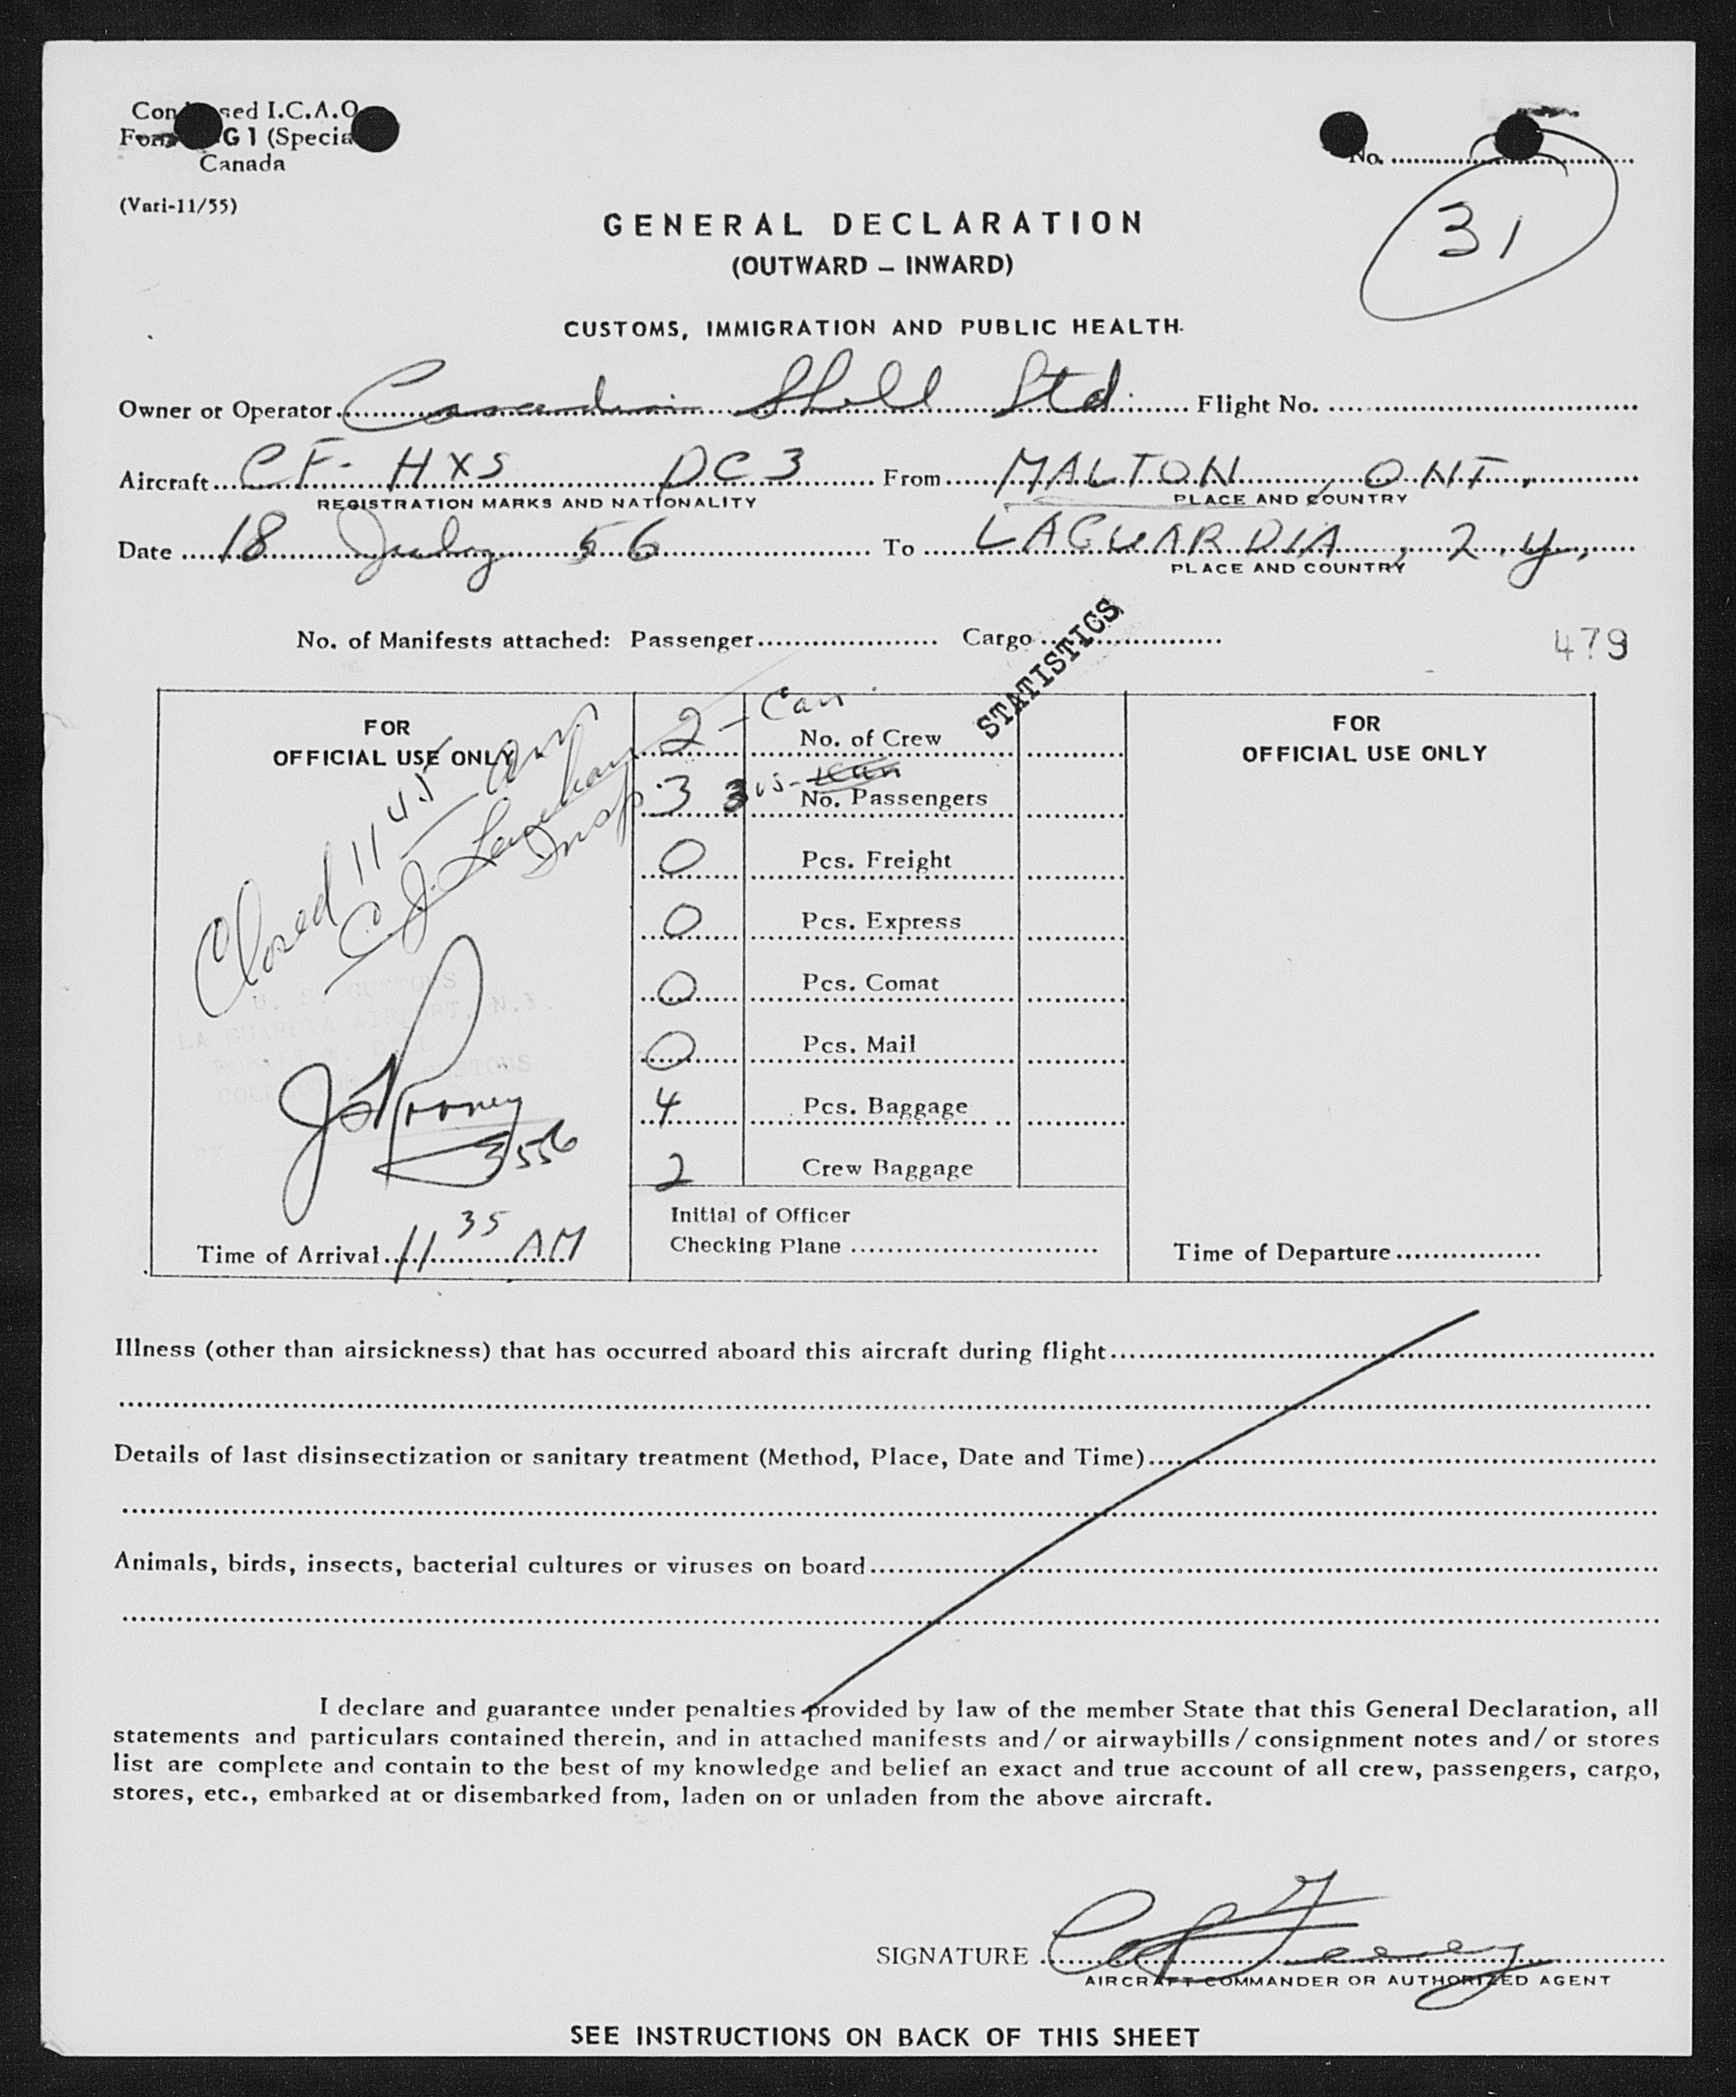 Condensed I.C.A.O.
Form G 1 (Special
Canada
(Vari-11/55)
No.
31
GENERAL DECLARATION
(OUTWARD – INWARD)
CUSTOMS, IMMIGRATION AND PUBLIC HEALTH
Owner or Operator Canadian Shell Ltd Flight No.
Aircraft CF-HXS DC3 From MALTON ONT.
REGISTRATION MARKS AND NATIONALITY PLACE AND COUNTRY
Date 18 July 56 To LAGUARDIA, N.Y.
PLACE AND COUNTRY
No. of Manifests attached: Passenger Cargo
STATISTICS
479
FOR
OFFICIAL USE ONLY
Closed 11 45 am
C. J.
Insp
U. S. CUSTOMS
LA GUARDIA AIRPORT, N.Y.
3556
Time of Arrival 11 35 AM
2 - Can No. of Crew
3 3 US - Can No. Passengers
0 Pcs. Freight
0 Pcs. Express
0 Pcs. Comat
0 Pcs. Mail
4 Pcs. Baggage
2 Crew Baggage
Initial of Officer
Checking Plane
FOR
OFFICIAL USE ONLY
Time of Departure
Illness (other than airsickness) that has occurred aboard this aircraft during flight
Details of last disinsectization or sanitary treatment (Method, Place, Date and Time)
Animals, birds, insects, bacterial cultures or viruses on board
I declare and guarantee under penalties provided by law of the member State that this General Declaration, all
statements and particulars contained therein, and in attached manifests and/or airwaybills/consignment notes and/or stores
list are complete and contain to the best of my knowledge and belief an exact and true account of all crew, passengers, cargo,
stores, etc., embarked at or disembarked from, laden on or unladen from the above aircraft.
SIGNATURE
AIRCRAFT COMMANDER OR AUTHORIZED AGENT
SEE INSTRUCTIONS ON BACK OF THIS SHEET